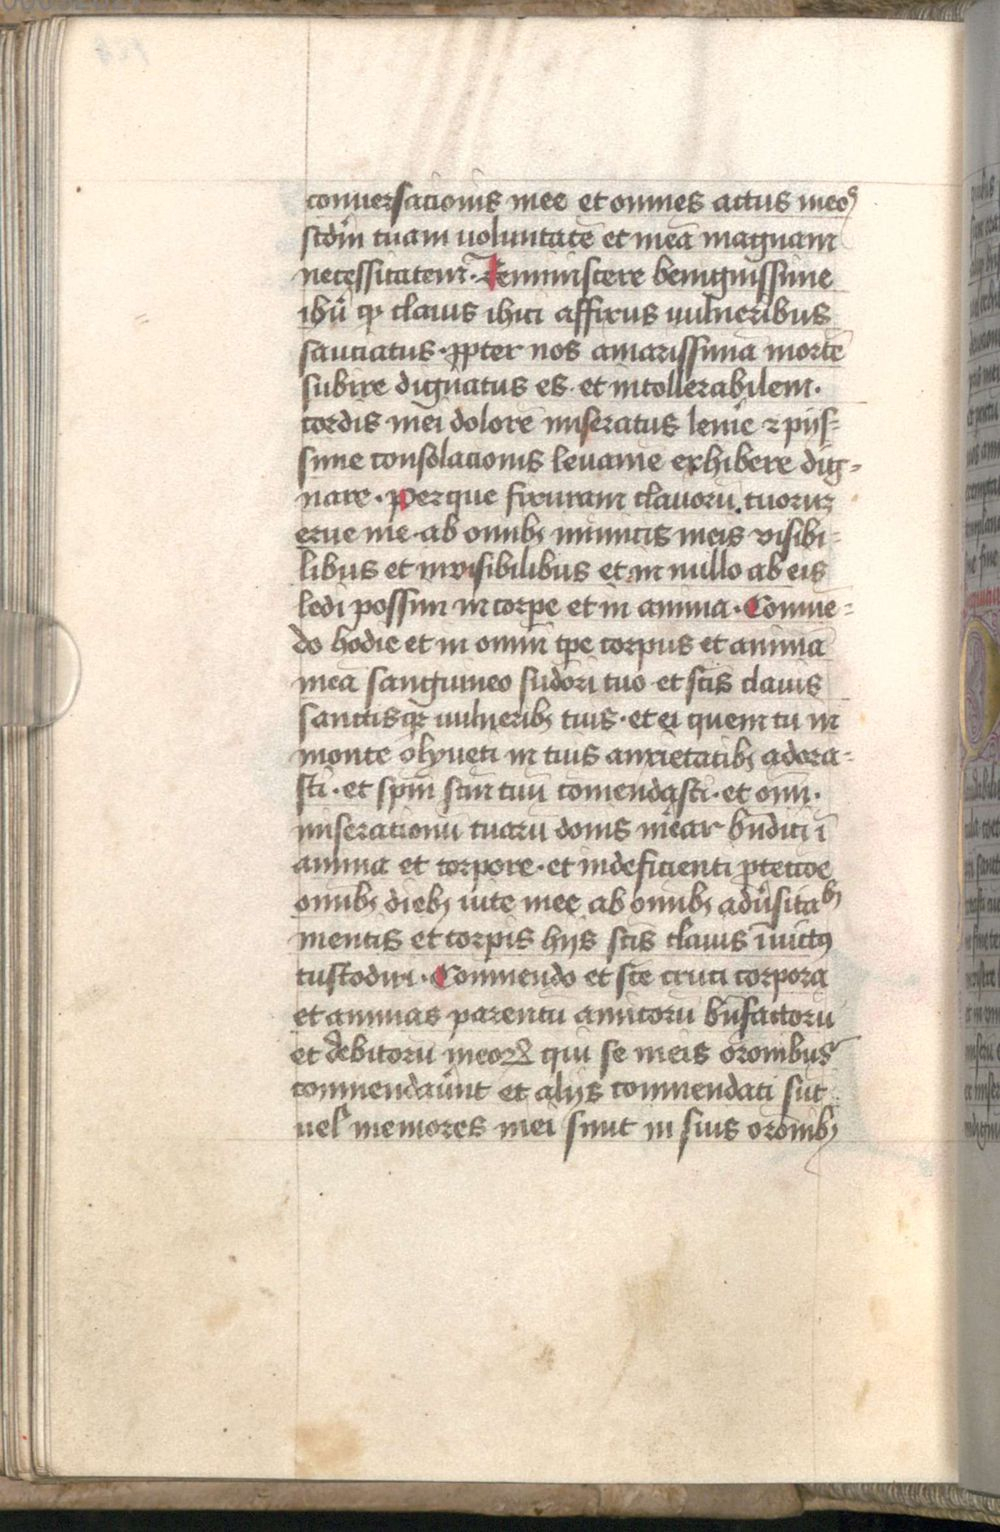 conuersacionis mee et omnes actus meos
scdm tuam uoluntatē et meā magnam
necessitatem. Reminiscere benignissime
ihū qp clauis ihici affixus uulneribus
sauciatus ꝓpter nos amarissima mortē
subire dignatus es. et intollerabilem.
cordis mei dolorē miseratus leniē ⁊ piis-
sime consolacionis leuamē exhibere dig-
nare. Perque fixuram clauorū tuorum
erue me ab omnibꝫ inimicis meis visibi-
libus et inuisibilibus et in nullo ab eis
ledi possim in corpe et in anima. Comme-
do hodie et in omni tpe corpus et animā
meā sanguineo sudori tuo et scis clauis
sanctisqꝫ uulneribꝫ tuis. et ei quem tu in
monte olyueti in tuis anxietatibꝫ adora-
sti. et spm scm tuū comendasti. et omi.
miserationū tuarū donis mear bndici ī
anima et corpore. et indeficienti ꝓtectoe
omibꝫ diebꝫ uite mee ab omibꝫ adūsitabꝫ
mentis et corpis hijs scis clauis īuictꝰ
custodiri. Commendo et sce cruci corpora
et animas parentū amicorū bnfactorū
et debitorū meoꝝ qui se meis oronibus
commendaūnt et alijs commendati sūt
uel memores mei sunt in suis oronibꝫ